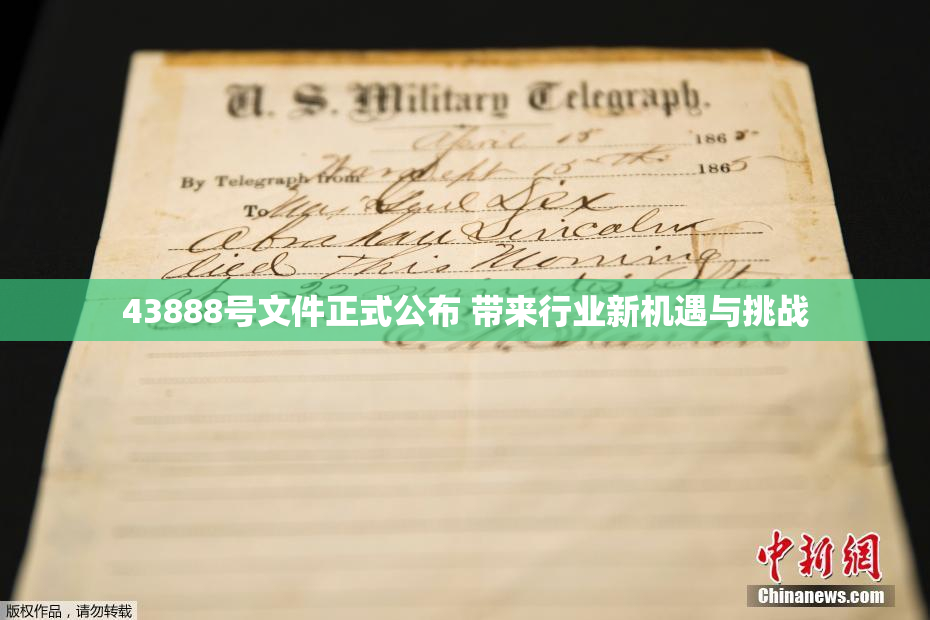 U. S. Military Telegraph.
April 15 1865
By Telegraph from War Dept 15th 1865
To Maj Genl Dix
Abraham Lincoln
died This Morning
at 22 minutes after
43888号文件正式公布 带来行业新机遇与挑战
E. M. Stanton
中新网
Chinanews.com
版权作品，请勿转载